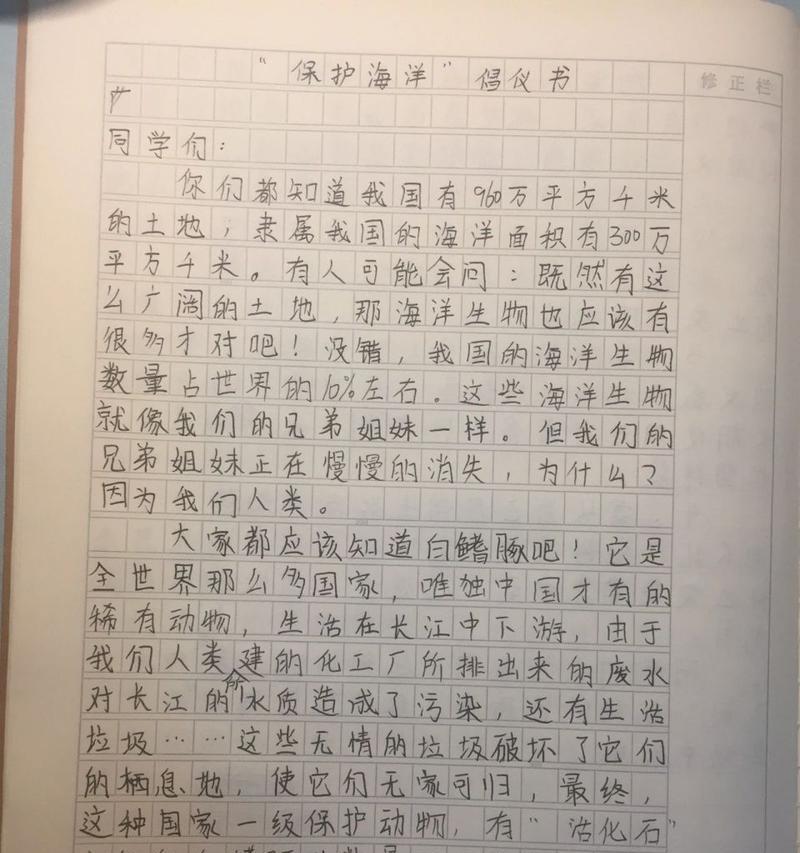 “保护海洋”倡仪书
修正栏
同学们：
你们都知道我国有960万平方千米
的土地，隶属我国的海洋面积有300万
平方千米。有人可能会问：既然有这
么广阔的土地，那海洋生物也应该有
很多才对吧！没错，我国的海洋生物
数量占世界的10%左右。这些海洋生物
就像我们的兄弟姐妹一样。但我们的
兄弟姐妹正在慢慢的消失，为什么？
因为我们人类。
大家都应该知道白鳍豚吧！它是
全世界那么多国家，唯独中国才有的
稀有动物，生活在长江中下游，由于
我们人类所建的化工厂所排出来的废水
对长江的水质造成了污染，还有生活
垃圾……这些无情的垃圾破坏了它们
的栖息地，使它们无家可归，最终，
这种国家一级保护动物，有“活化石”